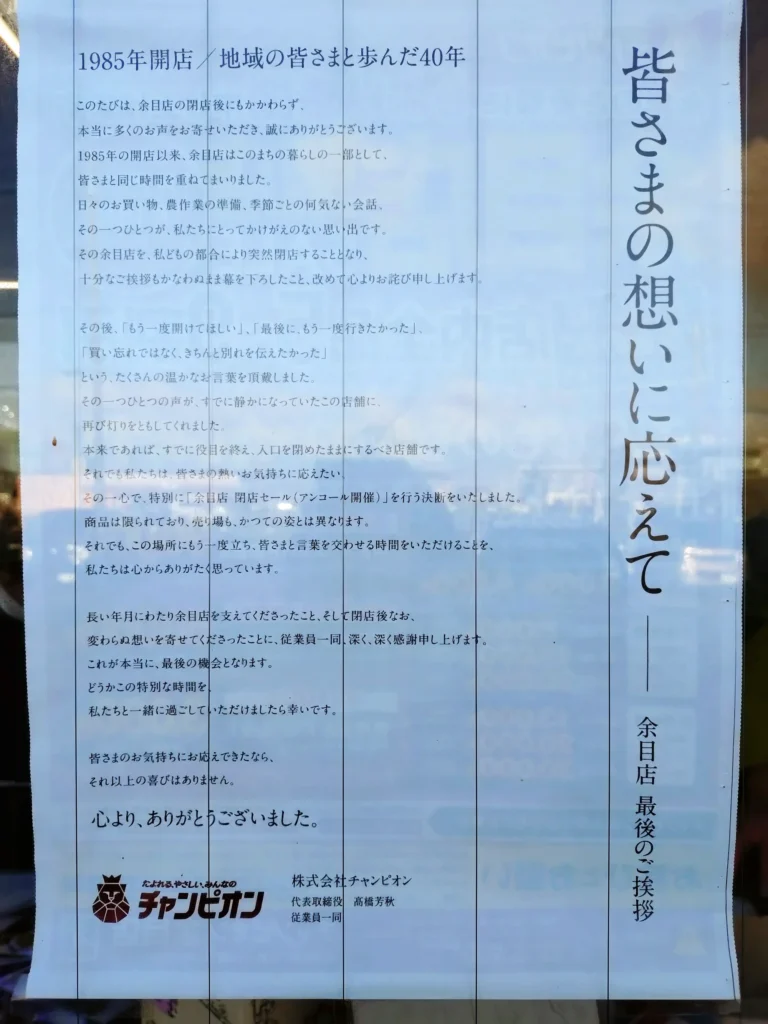 皆さまの想いに応えて――余目店 最後のご挨拶
1985年開店／地域の皆さまと歩んだ40年
このたびは、余目店の閉店後にもかかわらず、
本当に多くのお声をお寄せいただき、誠にありがとうございます。
1985年の開店以来、余目店はこのまちの暮らしの一部として、
皆さまと同じ時間を重ねてまいりました。
日々のお買い物、農作業の準備、季節ごとの何気ない会話、
その一つひとつが、私たちにとってかけがえのない思い出です。
その余目店を、私どもの都合により突然閉店することとなり、
十分なご挨拶もかなわぬまま幕を下ろしたこと、改めて心よりお詫び申し上げます。
その後、「もう一度開けてほしい」、「最後に、もう一度行きたかった」、
「買い忘れではなく、きちんと別れを伝えたかった」
という、たくさんの温かなお言葉を頂戴しました。
その一つひとつの声が、すでに静かになっていたこの店舗に、
再び灯りをともしてくれました。
本来であれば、すでに役目を終え、入口を閉めたままにするべき店舗です。
それでも私たちは、皆さまの熱いお気持ちに応えたい、
その一心で、特別に「余目店 閉店セール（アンコール開催）」を行う決断をいたしました。
商品は限られており、売り場も、かつての姿とは異なります。
それでも、この場所にもう一度立ち、皆さまと言葉を交わせる時間をいただけることを、
私たちは心からありがたく思っています。
長い年月にわたり余目店を支えてくださったこと、そして閉店後なお、
変わらぬ想いを寄せてくださったことに、従業員一同、深く、深く感謝申し上げます。
これが本当に、最後の機会となります。
どうかこの特別な時間を、
私たちと一緒に過ごしていただけましたら幸いです。
皆さまのお気持ちにお応えできたなら、
それ以上の喜びはありません。
心より、ありがとうございました。
たよれる、やさしい、みんなの
チャンピオン
株式会社チャンピオン
代表取締役 髙橋芳秋
従業員一同